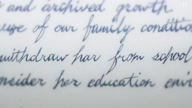 and archived growth
use of our family condition
withdraw her from school
nsider her education env